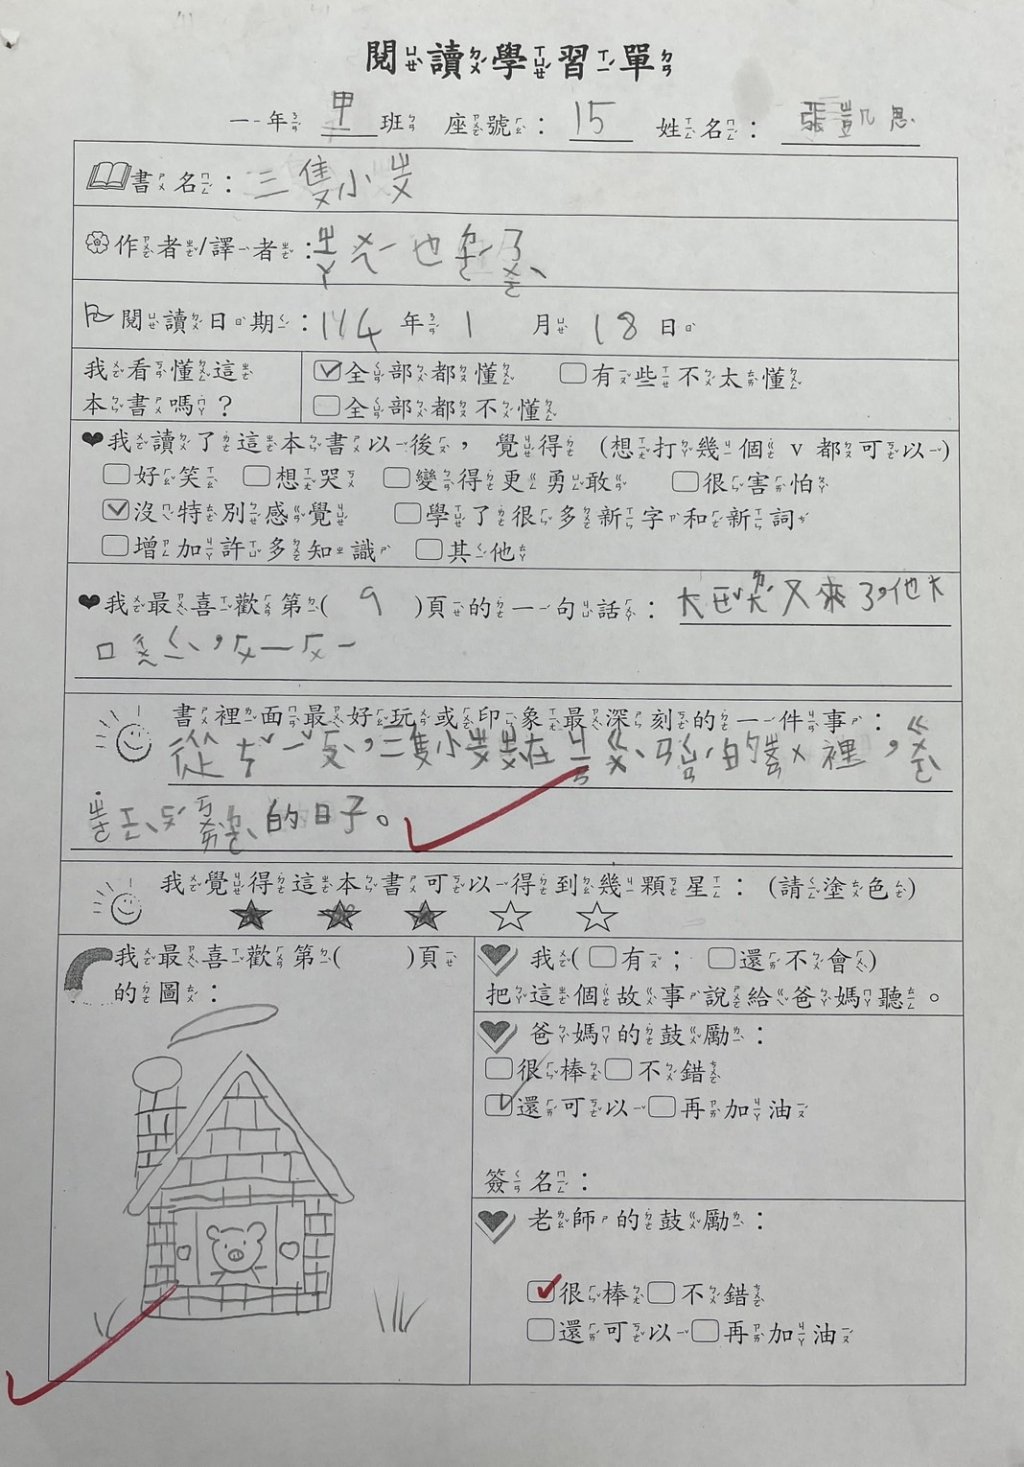 閱讀學習單
一年 甲 班 座號： 15 姓名： 張凱恩
書名：三隻小
作者/譯者：
閱讀日期：114 年 1 月 18 日
我看懂這 ☑全部都懂 □有些不太懂
本書嗎？ □全部都不懂
❤我讀了這本書以後，覺得 (想打幾個 v 都可以)
□好笑 □想哭 □變得更勇敢 □很害怕
☑沒特別感覺 □學了很多新字和新詞
□增加許多知識 □其他
❤我最喜歡第( 9 )頁的一句話： 又來了，他大
口
書裡面最好玩或印象最深刻的一件事：
從 ，三隻小 在 的 裡，
的日子。
我覺得這本書可以得到幾顆星：(請塗色)
★ ★ ★ ☆ ☆
我最喜歡第( )頁
的圖：
我(□有；□還不會)
把這個故事說給爸媽聽。
爸媽的鼓勵：
□很棒□不錯
☑還可以□再加油
簽名：
老師的鼓勵：
☑很棒□不錯
□還可以□再加油